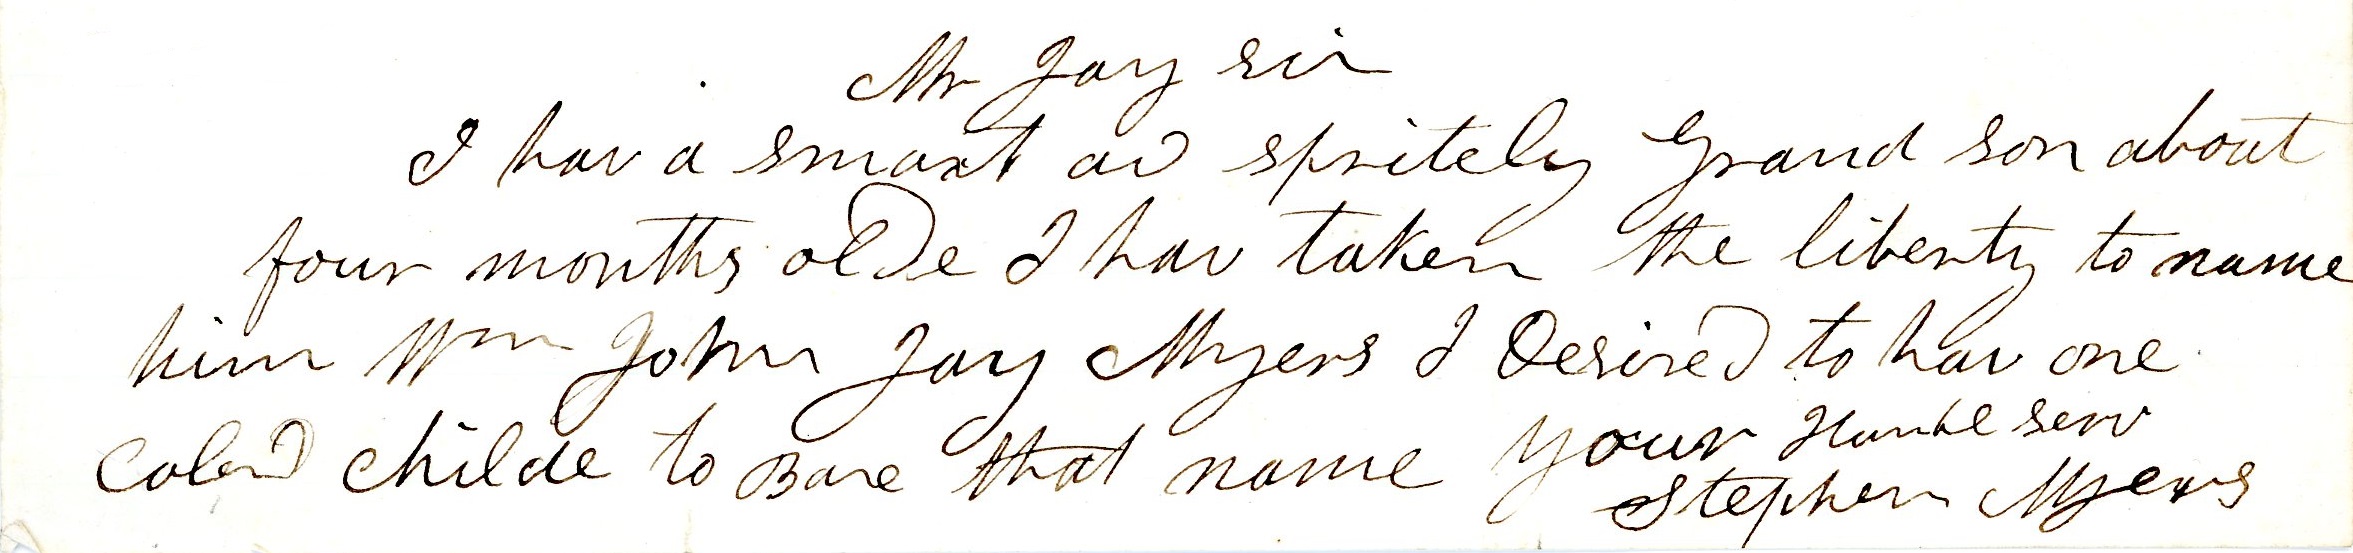 Mr Jay sir
I hav a smart ad spritely Grand son about
four months olde I hav taken the liberty to name
him Wm John Jay Myers I Desired to hav one
Colerd childe to Bare that name Your Humbl serv
Stephen Myers